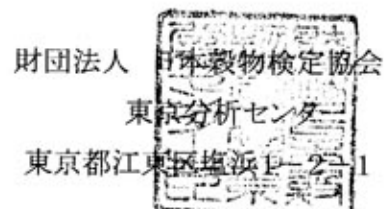 財団法人 日本穀物検定協会
東京分析センター
東京都江東区塩浜1-2-1